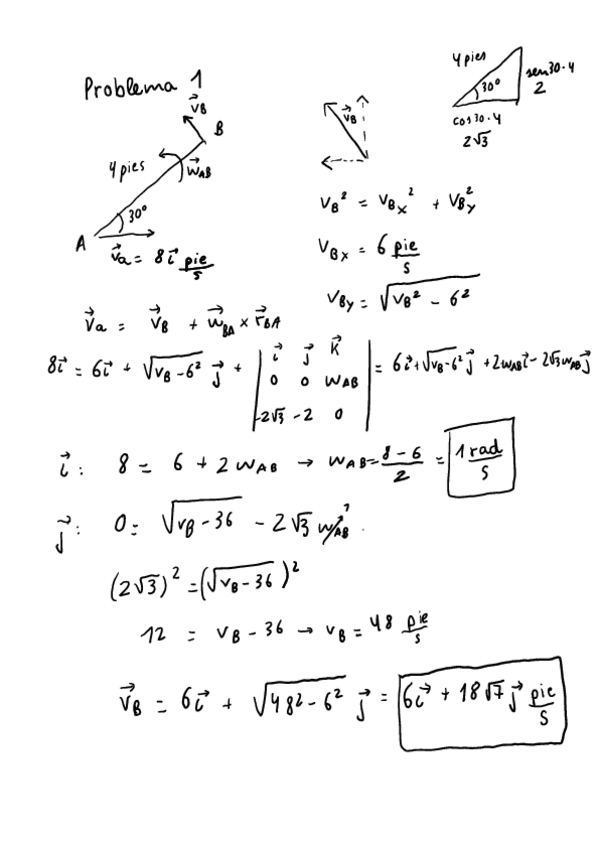 Problema 1
4 pies
30°
sen30·4
2
cos30·4
2√3
v⃗B
B
4 pies
w⃗AB
30°
A
v⃗a = 8i⃗ pie/s
v⃗B
vB² = vBx² + vBy²
vBx = 6 pie/s
vBy = √(vB² - 6²)
v⃗a = v⃗B + w⃗BA × r⃗BA
8i⃗ = 6i⃗ + √(vB - 6²) j⃗ + | i⃗ j⃗ k⃗ | 0 0 wAB | -2√3 -2 0 | = 6i⃗ + √(vB - 6²) j⃗ + 2wAB i⃗ - 2√3 wAB j⃗
i⃗: 8 = 6 + 2 wAB → wAB = (8 - 6)/2 = 1 rad/s
j⃗: 0 = √(vB - 36) - 2√3 wAB 1
(2√3)² = (√(vB - 36))²
12 = vB - 36 → vB = 48 pie/s
v⃗B = 6i⃗ + √(48² - 6²) j⃗ = 6i⃗ + 18√7 j⃗ pie/s